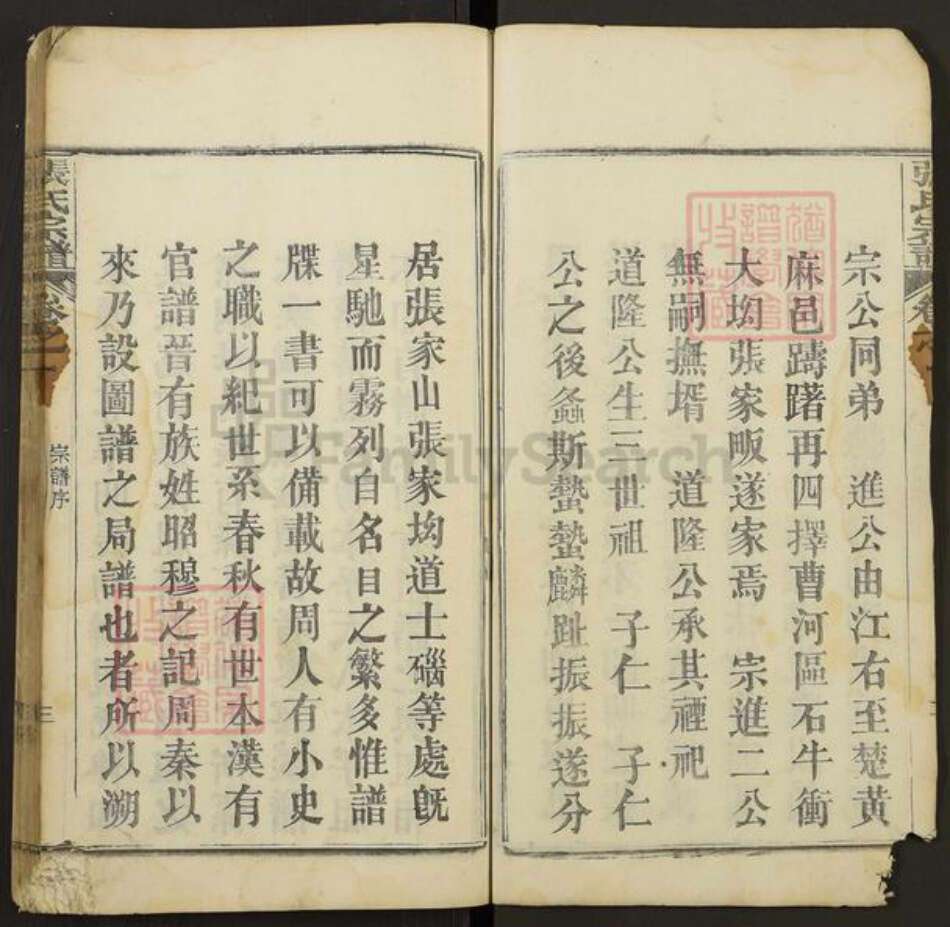 宗公同弟　進公由江右至楚黃
麻邑躊躇再四擇曹河區石牛衝
大㘭張家畈遂家焉　宗進二公
無嗣撫壻　道隆公承其禋祀
道隆公生三世祖　子仁　子仁
公之後螽斯蟄蟄麟趾振振遂分
居張家山張家㘭道士磘等處旣
星馳而霧列自名目之繁多惟譜
牒一書可以備載故周人有小史
之職以紀世系春秋有世本漢有
官譜晉有族姓昭穆之記周秦以
來乃設圖譜之局譜也者所以溯
張氏宗譜
卷
宗譜序
三
FamilySearch